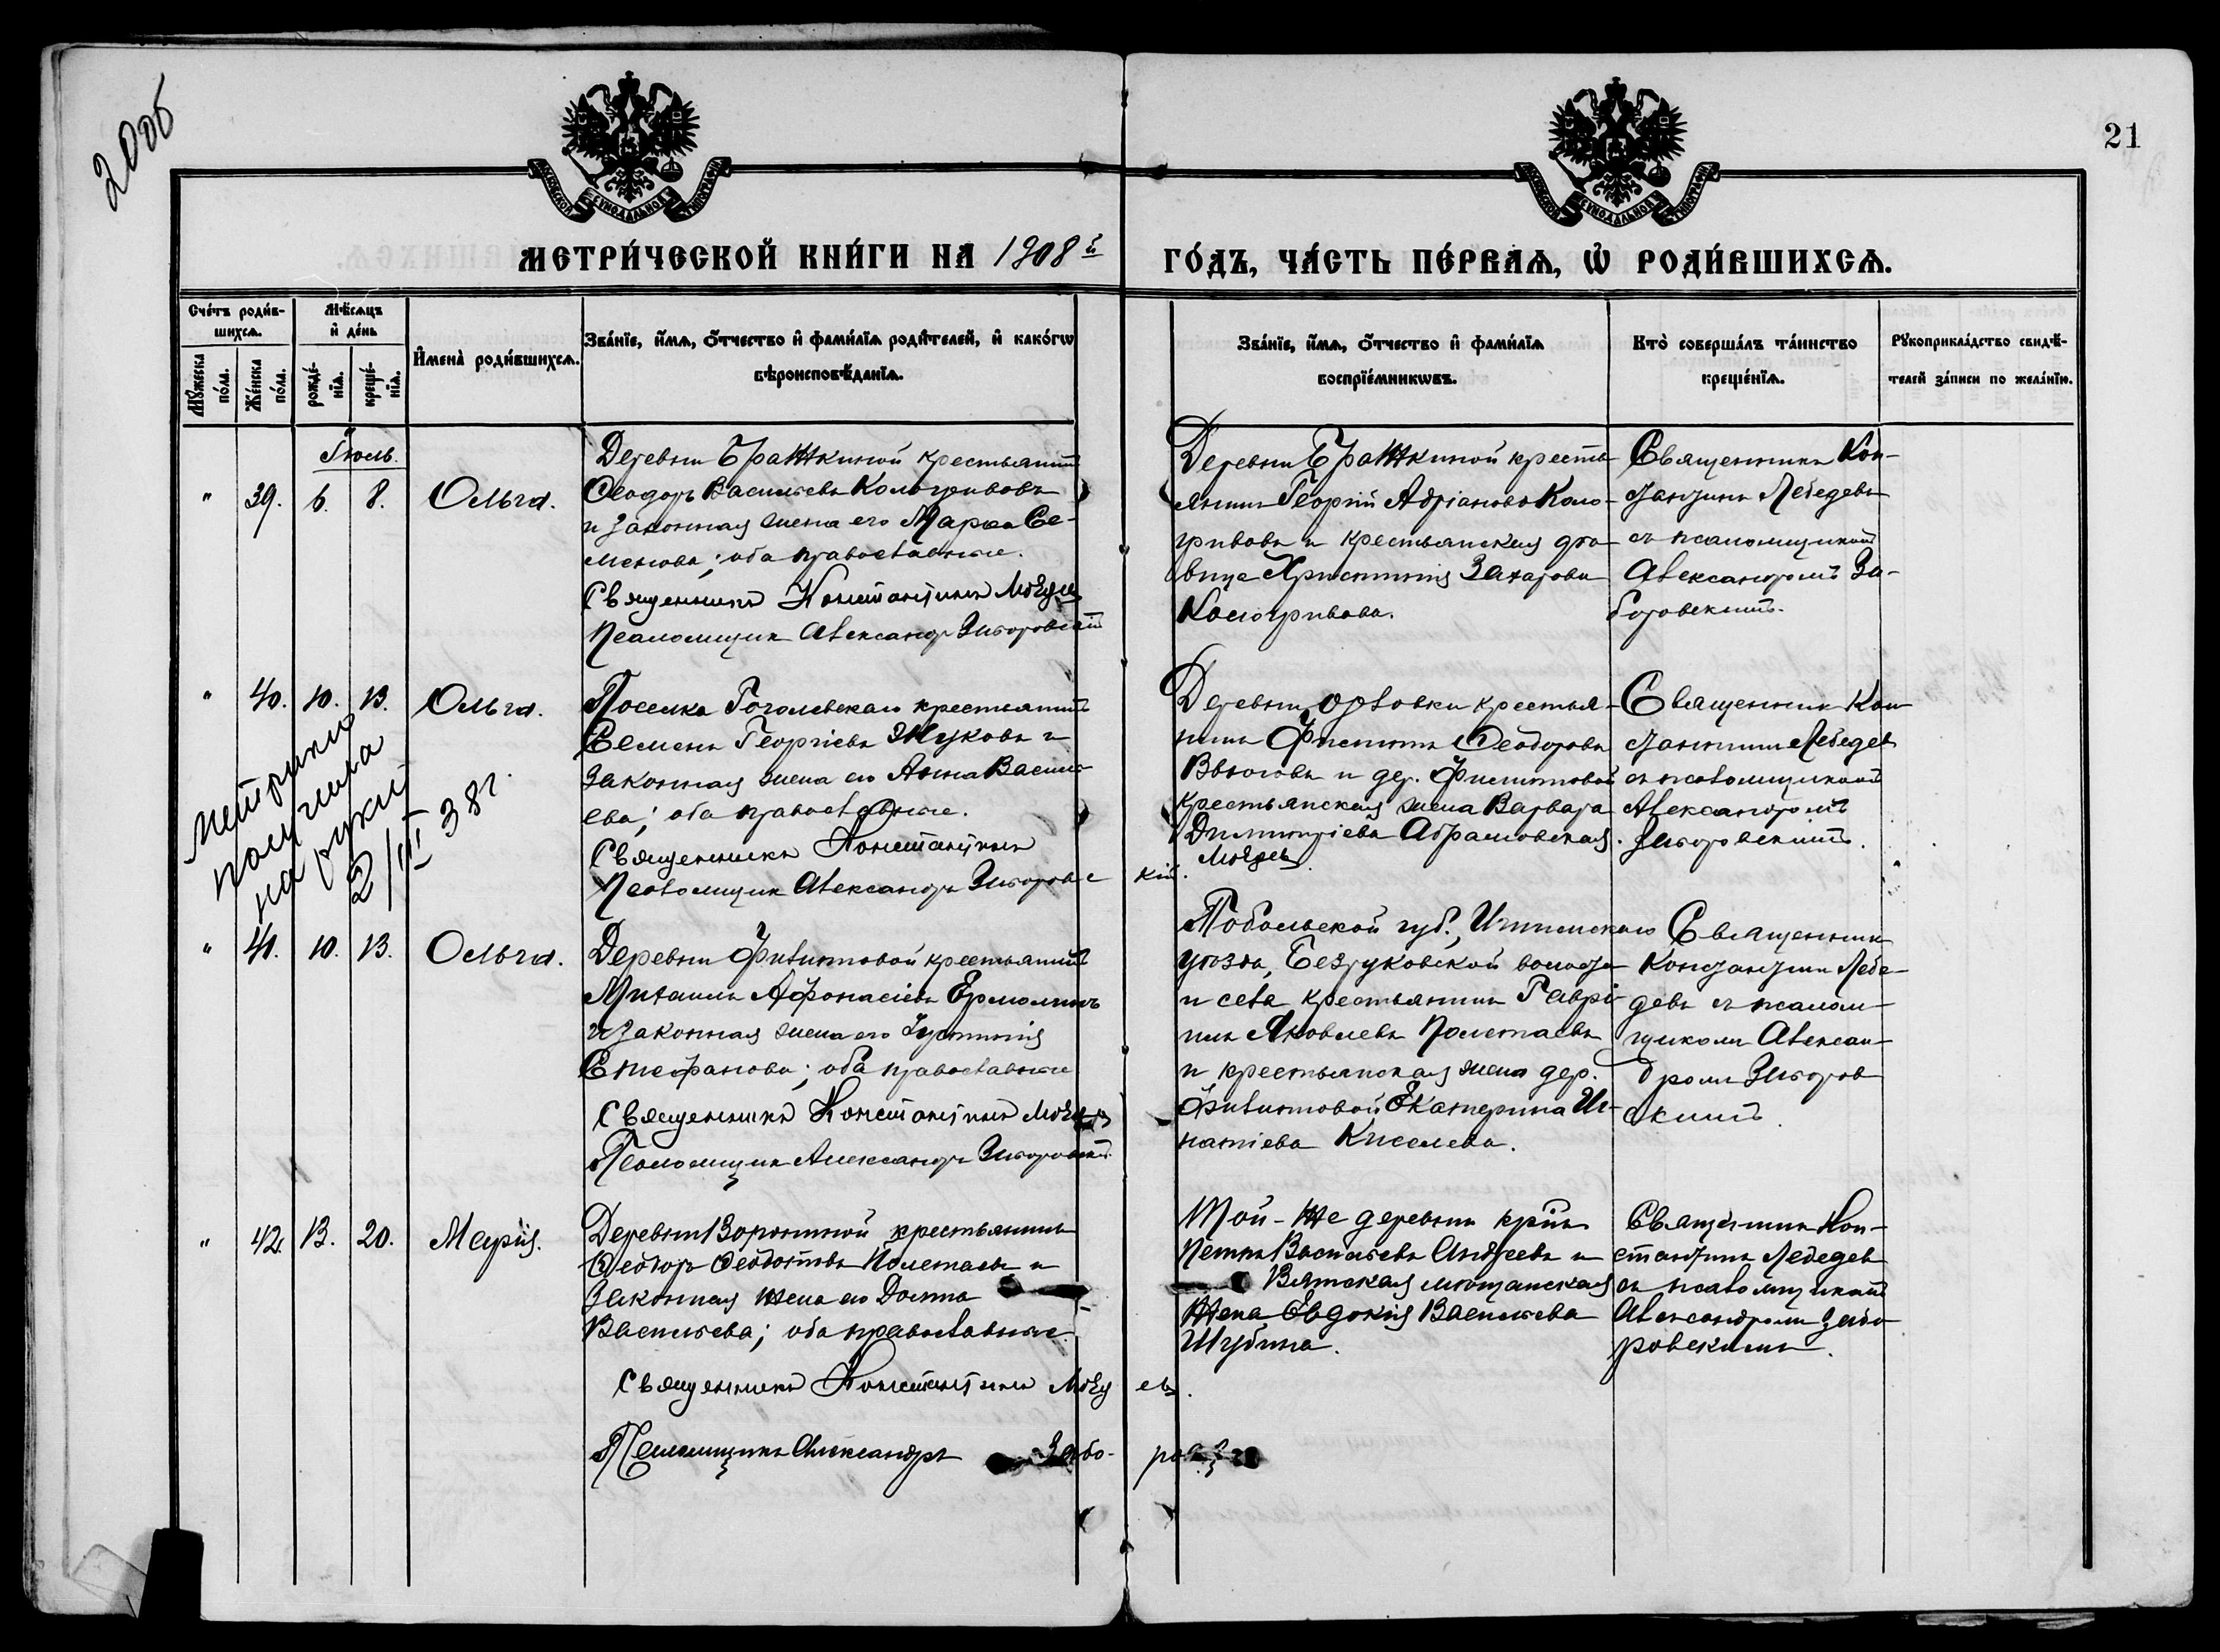 20об
21
МЕТРИ́ЧЕСКОЙ КНИ́ГИ НА 1908й
ГО́ДЪ, ЧА́СТЬ ПЕ́РВАѦ, Ѡ҆ РОДИ́ВШИХСѦ.
Сче́тъ роди́в-
шихсѧ.
Мѣ́сѧцъ
и҆ де́нь
Мꙋ́жеска
по́ла.
Же́нска
по́ла.
рожде́-
нїѧ.
креще́-
нїѧ.
И҆мена̀ роди́вшихсѧ.
Зва́нїе, и҆́мѧ, ѻ҆́тчество и҆ фами́лїѧ роди́телей, и҆ како́гѡ
вѣроисповѣ́данїѧ.
Зва́нїе, и҆́мѧ, ѻ҆́тчество и҆ фами́лїѧ
воспрїе́мникѡвъ.
Кто̀ соверша́лъ та́инство
креще́нїѧ.
Рꙋкоприкла́дство свидѣ́-
телей за́писи по жела́нїю.
Іюль.
" 39. 6. 8. Ольга.
Деревни Бражкиной крестьянинъ
Ѳеодоръ Васильевъ Кологривовъ
и законная жена его Марѳа Се-
менова; оба православные.
Священникъ Константинъ
Псаломщик Александръ
Деревни Бражкиной кресть-
янинъ Георгій Адріановъ Коло-
гривовъ и крестьянская дѣ-
вица Христинія Захарова
Кологривова.
Священникъ Кон-
стантинъ Лебедевъ
съ псаломщикомъ
Александромъ За-
боровскимъ.
" 40. 10. 13. Ольга.
Поселка Гоголевскаго крестьянинъ
Семенъ Георгіевъ Жуковъ и
законная жена его Анна Василь-
ева; оба православные.
Священникъ Константинъ
Лебедев
Псаломщик Александръ Заборовс-
кій.
Деревни Орловки крестья-
нинъ Ѳеодоровъ
Вьюговъ и дер. Филитовой
крестьянская жена Варвара
Димитріева Абрамовская.
Священник Кон-
стантин Лебедев
съ псаломщикомъ
Александромъ
Заборовскимъ.
метрику
получила
на руки
2/III 38г.
" 41. 10. 13. Ольга.
Деревни Филитовой крестьянинъ
Михаилъ Аѳонасіевъ Ермолинъ
и законная жена его
Стефанова; оба православные
Священникъ Константинъ
Псаломщик Александръ Заборовскій.
Тобольской губ., Ишимскаго
уѣзда, Безруковской волости
и села крестьянинъ Гаврі-
илъ Яковлевъ Полетаевъ
и крестьянская жена дер.
Филитовой Екатерина Иг-
натіева Киселева.
Священник
Константин Лебе-
девъ съ псалом-
щиком Алексан-
дром Заборов-
скимъ.
" 42. 13. 20. Марія.
Деревни Ворониной крестьянинъ
Ѳеодоръ Полетаевъ и
законная жена его Домна
Васильева; оба православные.
Священникъ Константинъ Лебед
евъ.
Псаломщикъ Александръ Забо-
ров
Той-же деревни кр-нъ
Петръ Васильевъ Андреевъ и
Вятская мѣщанская
жена Евдокія Васильева
Шубина.
Священник Кон-
стантинъ Лебедев
съ псаломщикомъ
Александром Забо-
ровскимъ.